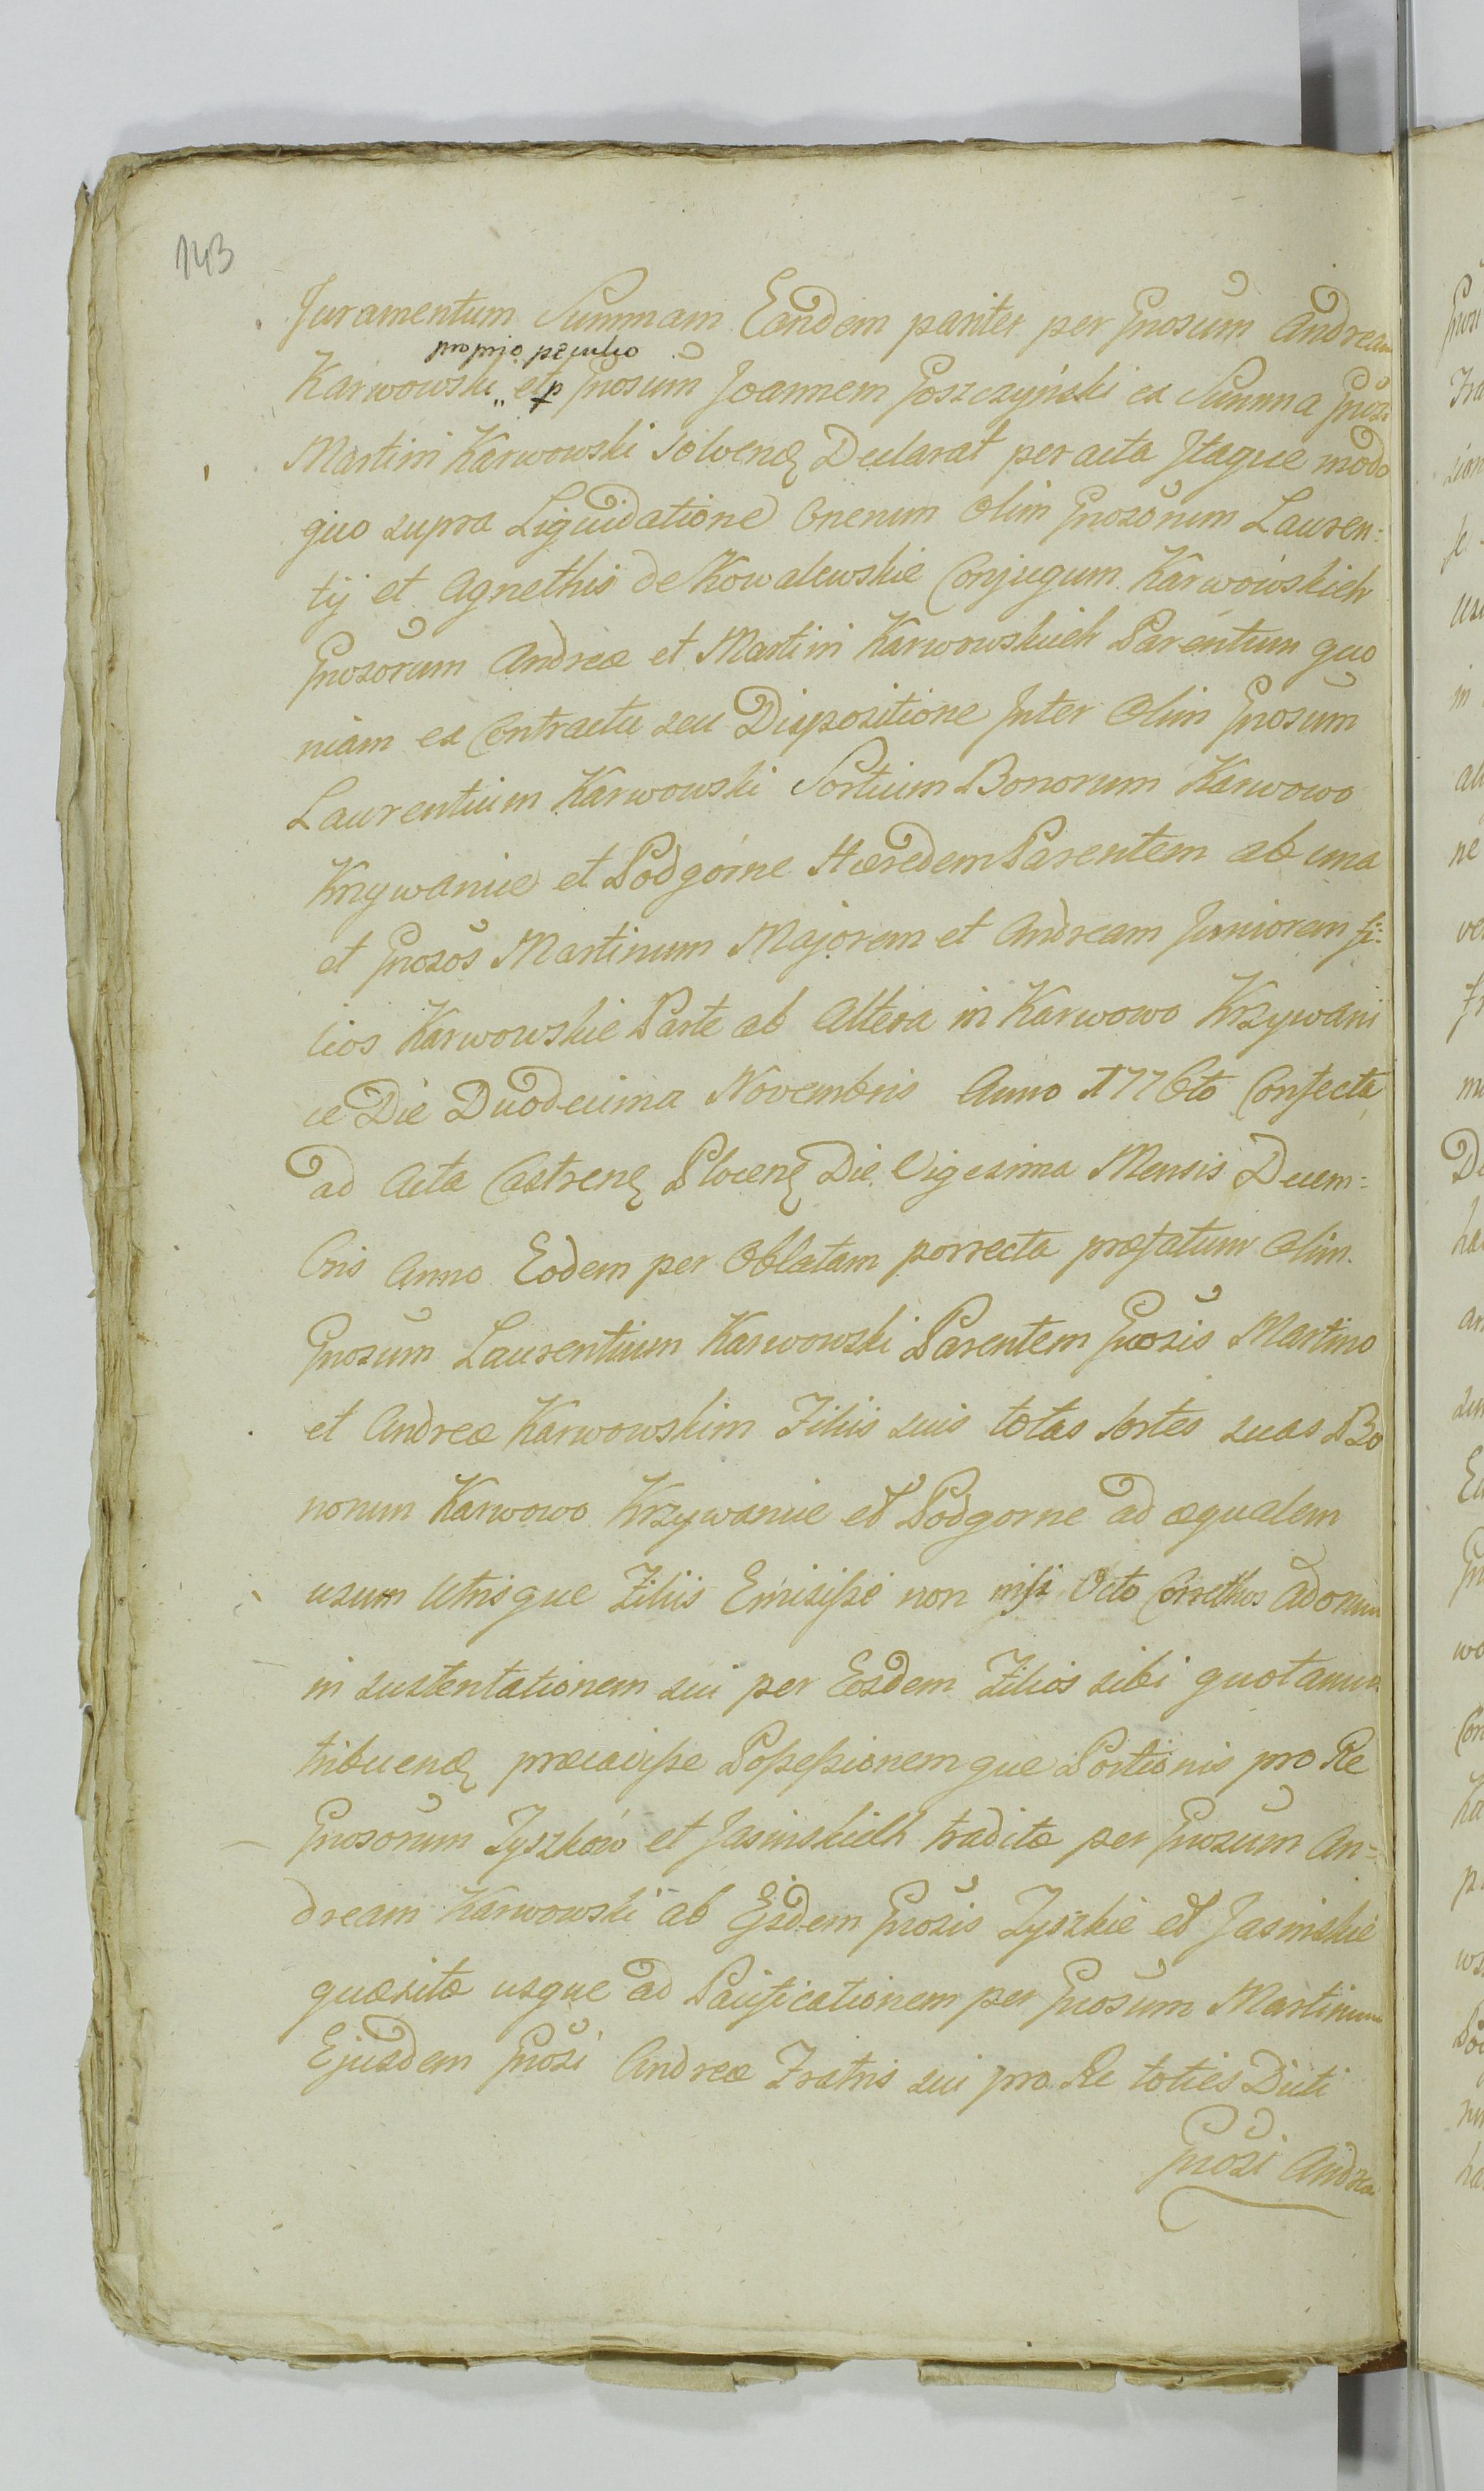 143
Juramentum Summam Eandem pariter per Gnosum Andream
proprio peculio
Karwowski „ et p Gnosum Joannem Goszczyński ex Summa Gnosi
Martini Karwowski Solvend Declarat per acta Itaque modo
quo supra Liquidatione Onerum Olim Gnosorum Lauren:
tij et Agnethis de Kowalewskie Conjugum Karwowskich
Gnosorum Andreæ et Martini Karwowskich Parentum quo
niam ex Contractu seu Dispositione Inter Olim Gnosum
Laurentium Karwowski Sortium Bonorum Karwowo
Krzywanice et Podgorne Hæredem Parentem ab una
et Gnosos Martinum Majorem et Andream Juniorem fi:
lios Karwowskie Parte ab Altera in Karwowo Krzywani
ce Die Duodecima Novembris Anno 1776to Confecta
ad Acta Castren Plocen Die Vigesima Mensis Decem:
bris Anno Eodem per Oblatam porrecta præfatum Olim
Gnosum Laurentium Karwowski Parentem Gnosis Martino
et Andreæ Karwowskim Filiis suis totas Sortes suas Bo
norum Karwowo Krzywanice et Podgorne ad æqualem
usum Utrisque Filiis Emisisse non nisi Octo Corethos Adorum
in sustentationem sui per Eosdem Filios sibi quotannis
tribuend præcavisse Possessionemque Portionis pro Re
Gnosorum Zyszków et Jasinskich traditæ per Gnosum An=
dream Karwowski ab Ejsdem Gnosis Zyszkie et Jasinskie
quæsitæ usque ad Pacificationem per Gnosum Martinum
Ejusdem Gnosi Andreæ Fratris sui pro Re toties Dicti
Gnosi Andreæ